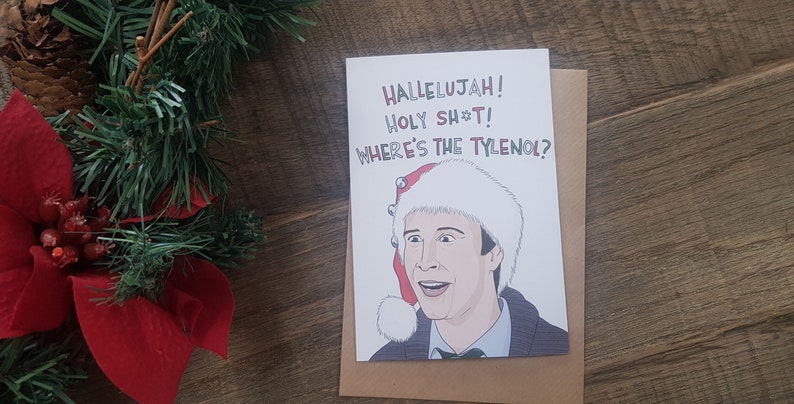 HALLELUJAH!
HOLY SH*T!
WHERE'S THE TYLENOL?